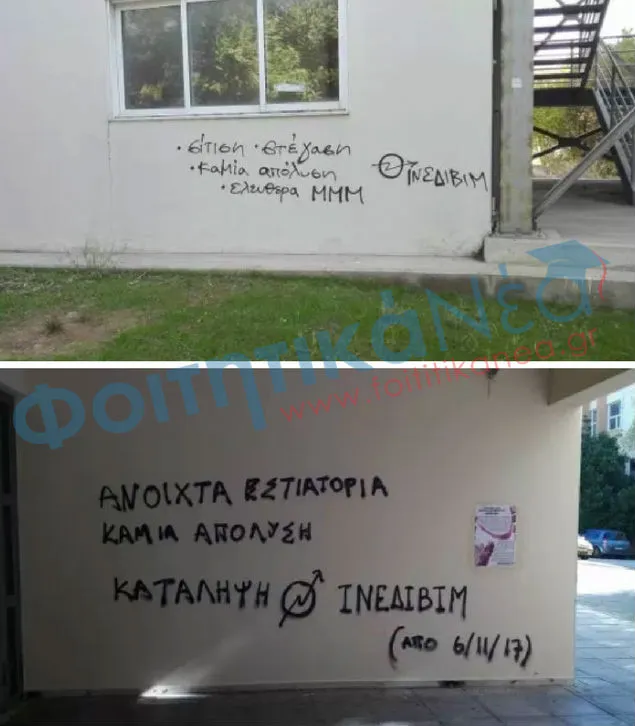 • σίτιση • στέγαση
• καμία απόλυση
• ελευθερα ΜΜΜ
ΙΝΕΔΙΒΙΜ
ΦοιτητικάΝέα
www.foititikanea.gr
ΑΝΟΙΧΤΑ ΕΣΤΙΑΤΟΡΙΑ
ΚΑΜΙΑ ΑΠΟΛΥΣΗ
ΚΑΤΑΛΗΨΗ ΙΝΕΔΙΒΙΜ
(ΑΠΟ 6/11/17)